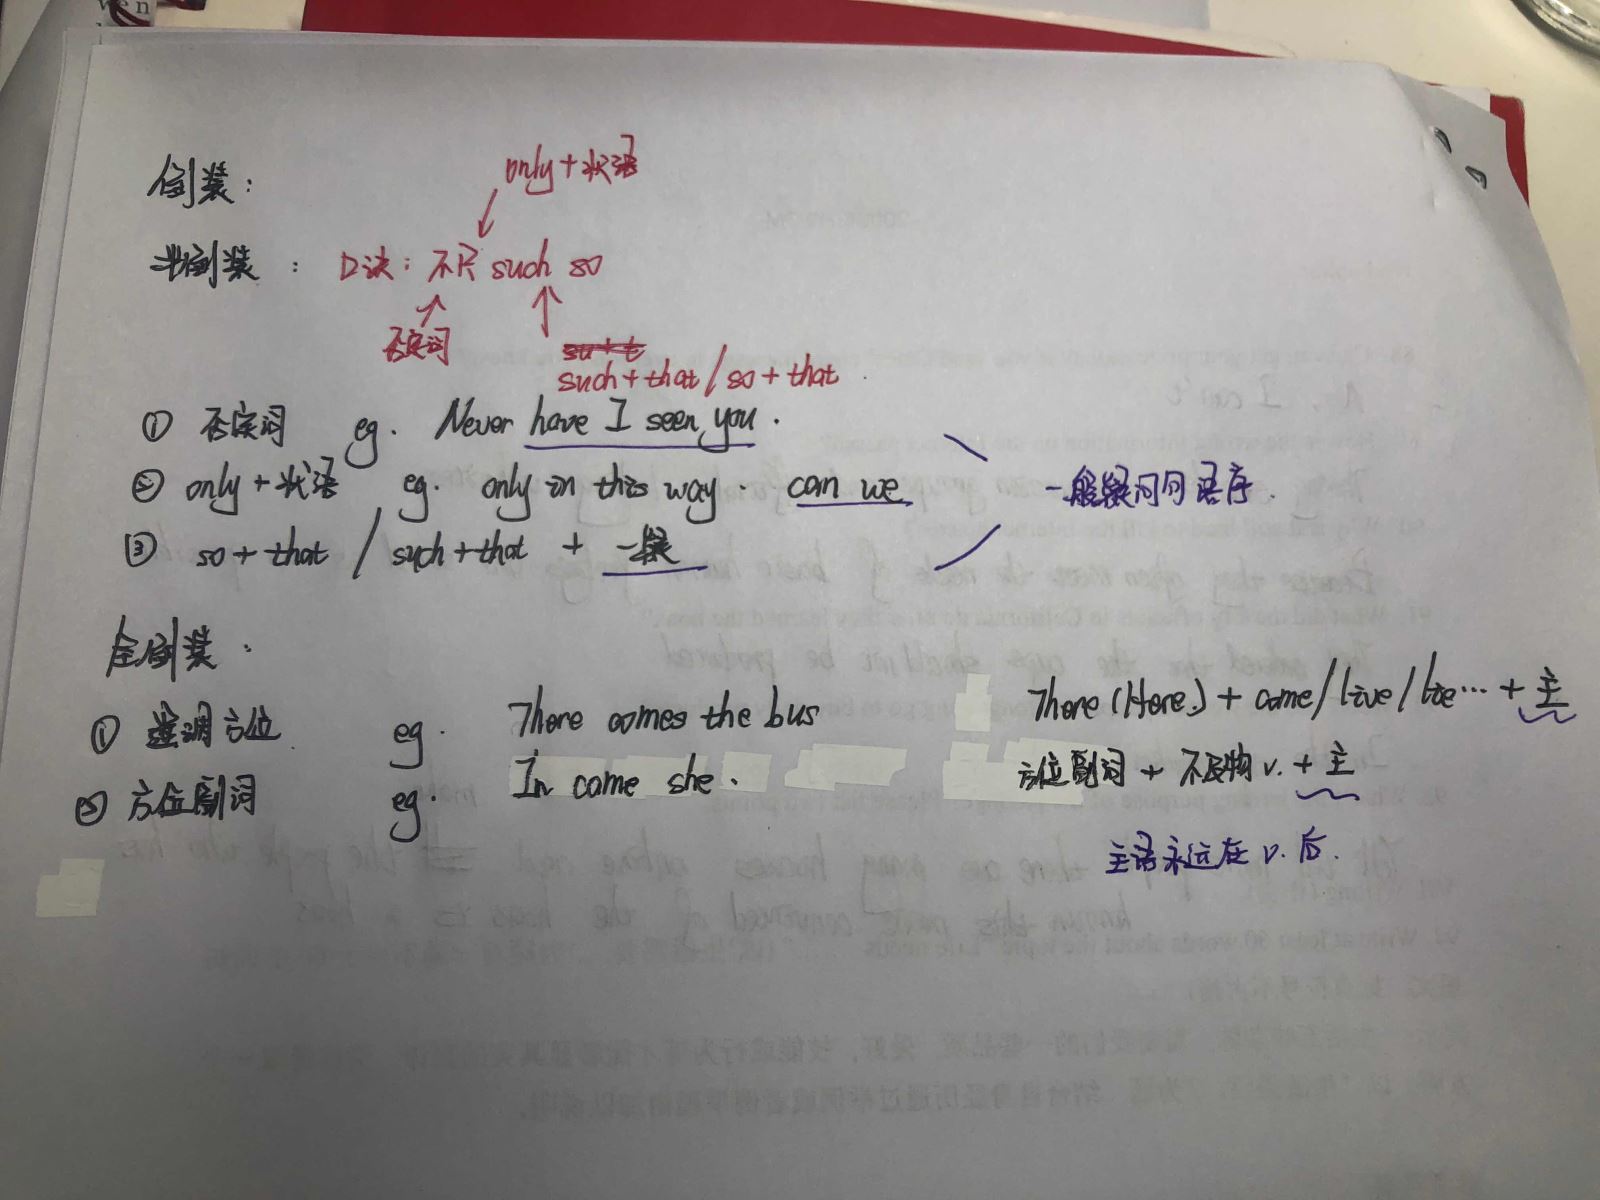 倒装：
only+状语
半倒装： 口决：不只 such so
否定词
such+that/so+that
① 否定词 eg. Never have I seen you.
② only+状语 eg. only in this way. can we
一般疑问句语序.
③ so+that / such+that + 一般
全倒装：
① 强调方位 eg. There comes the bus There(Here.)+come/live/lie…+主
② 方位副词 eg. In came she. 方位副词+不及物v.+主
主语永远在v.后.